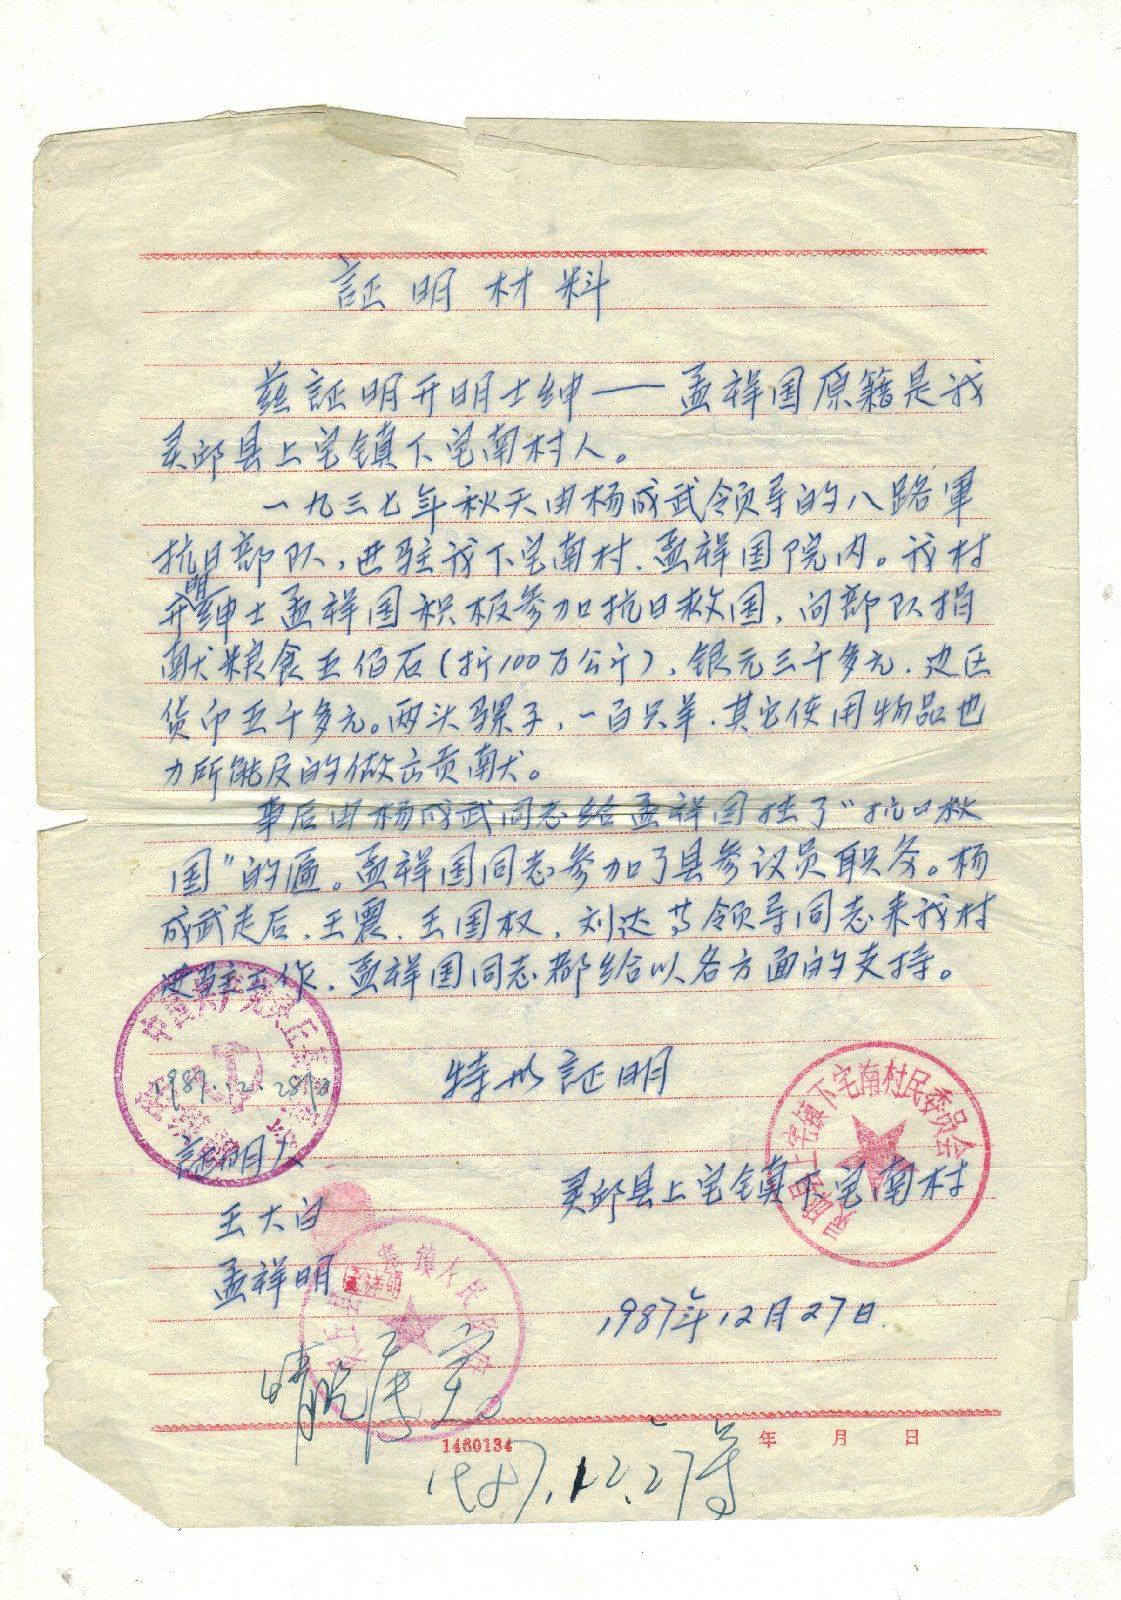 証明材料
兹証明开明士绅——孟祥国原籍是我
灵邱县上宅镇下宅南村人。
一九三七年秋天由杨成武领导的八路軍
抗日部队，进驻我下宅南村、孟祥国院内。我村
开明绅士孟祥国积极参加抗日救国，向部队捐
献粮食五佰石（折100万公斤），银元三千多元、边区
货币五千多元。两头骡子，一百只羊、其它使用物品也
力所能及的做出贡献。
事后由杨成武同志给孟祥国挂了"抗日救
国"的匾。孟祥国同志参加了县参议员职务。杨
成武走后、王震、王国权，刘达等领导同志来我村
进驻工作、孟祥国同志都给以各方面的支持。
特此証明
中国共产党灵丘县
1987.12.28日
証明人
王大白
孟祥明
灵邱县上宅镇下宅南村民委员会
灵邱县上宅镇下宅南村
1987年12月27日.
镇人民
属实
1460134
年 月 日
1987.12.27